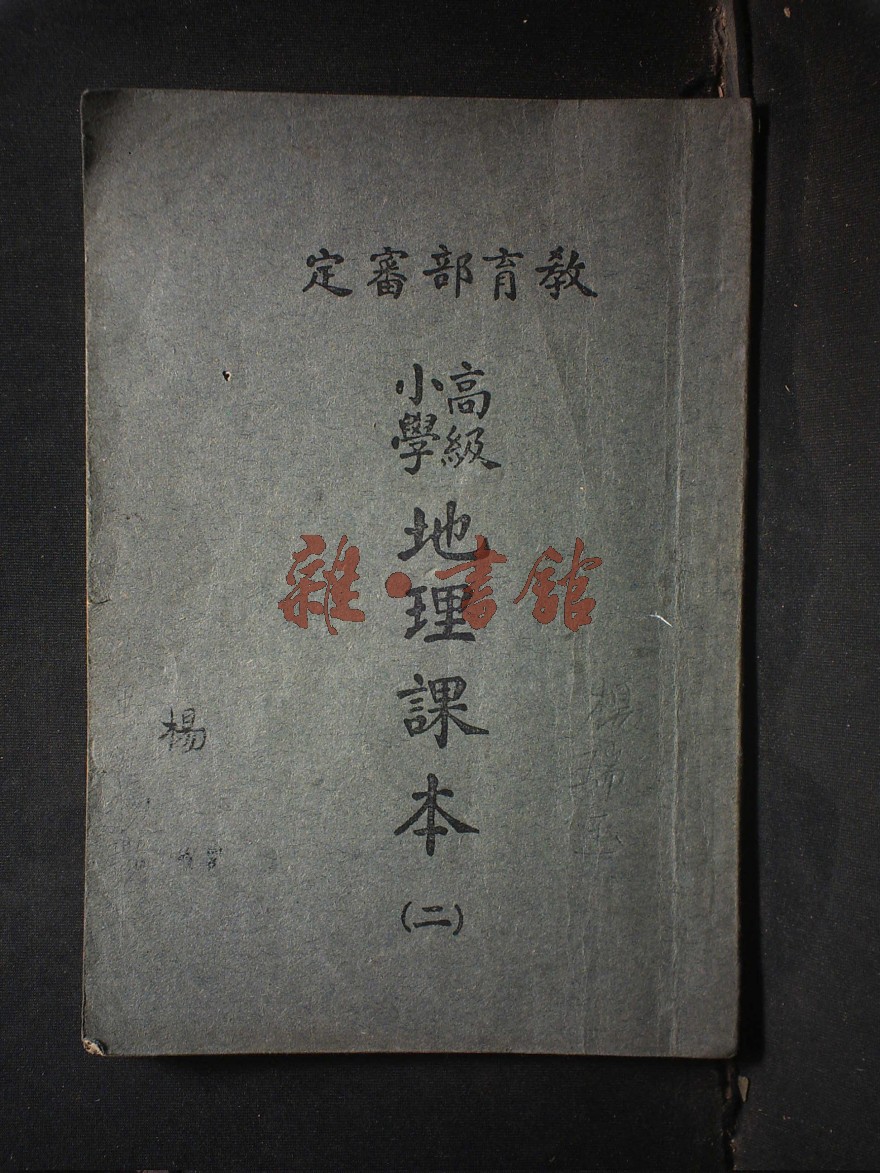 教育部審定
高級
小學
地理課本
(二)
雜·書館
楊
楊瑞玉